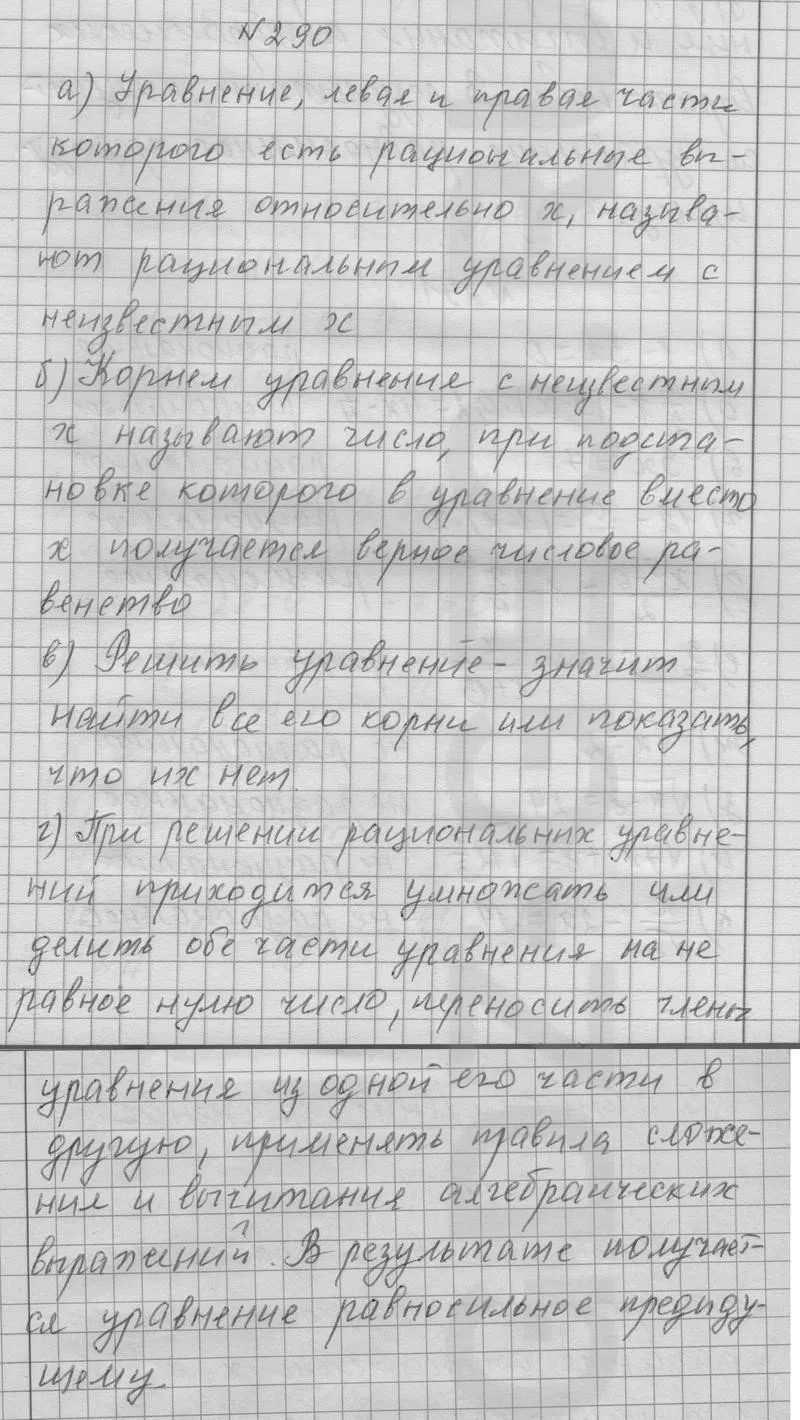 №290
а) Уравнение, левая и правая части
которого есть рациональные вы-
ражения относительно х, называ-
ют рациональным уравнением с
неизвестным х
б) Корнем уравнения с неизвестным
х называют число, при подста-
новке которого в уравнение вместо
х получается верное числовое ра-
венство
в) Решить уравнение - значит
найти все его корни или показать,
что их нет.
г) При решении рациональных уравне-
ний приходится умножать или
делить обе части уравнения на не
равное нулю число, переносить члены
уравнения из одной его части в
другую, применять правила сложе-
ния и вычитания алгебраических
выражений. В результате получает-
ся уравнение равносильное предыду-
щему.